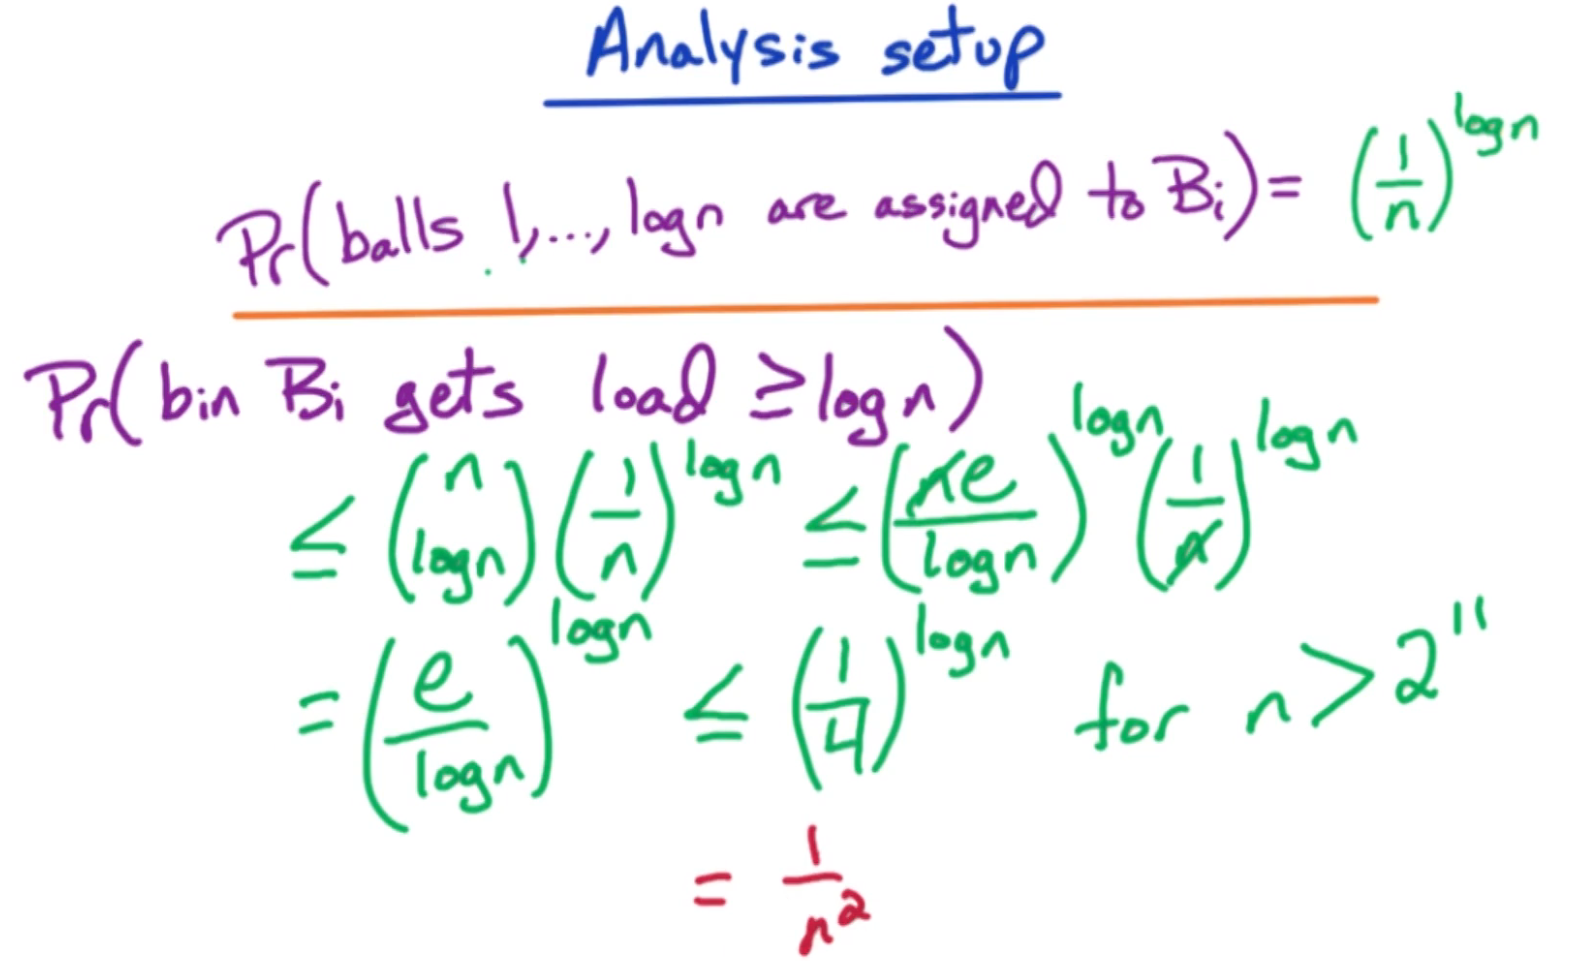 Analysis setup
Pr(balls 1,...,log n are assigned to B_i) = (1/n)^{log n}
Pr(bin B_i gets load ≥ log n)
≤ (n choose log n) (1/n)^{log n} ≤ (ne/log n)^{log n} (1/n)^{log n}
= (e/log n)^{log n} ≤ (1/4)^{log n} for n > 2^{11}
= 1/n^2